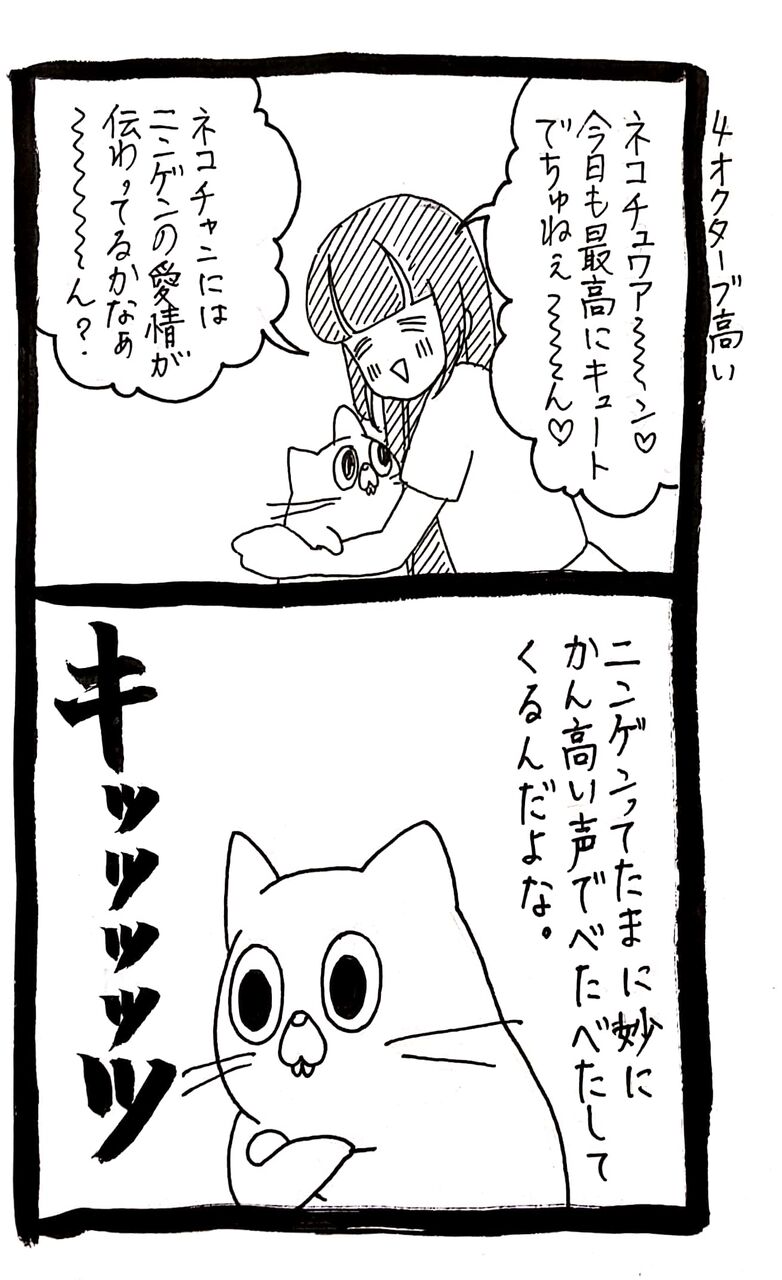 4オクターブ高い
ネコチュウァ〜〜〜ン♡
今日も最高にキュート
でちゅねぇ〜〜〜〜ん♡
ネコチャンには
ニンゲンの愛情が
伝わってるかなぁ
〜〜〜〜〜〜ん？
ニンゲンってたまに妙に
かん高い声でべたべたして
くるんだよな。
キッッッッッ